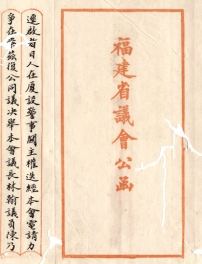 福建省議會公函
逕啟者日人在廈設警事關主權迭經本會電請力
爭在案茲復公同議决舉本會議長林翰議員陳乃